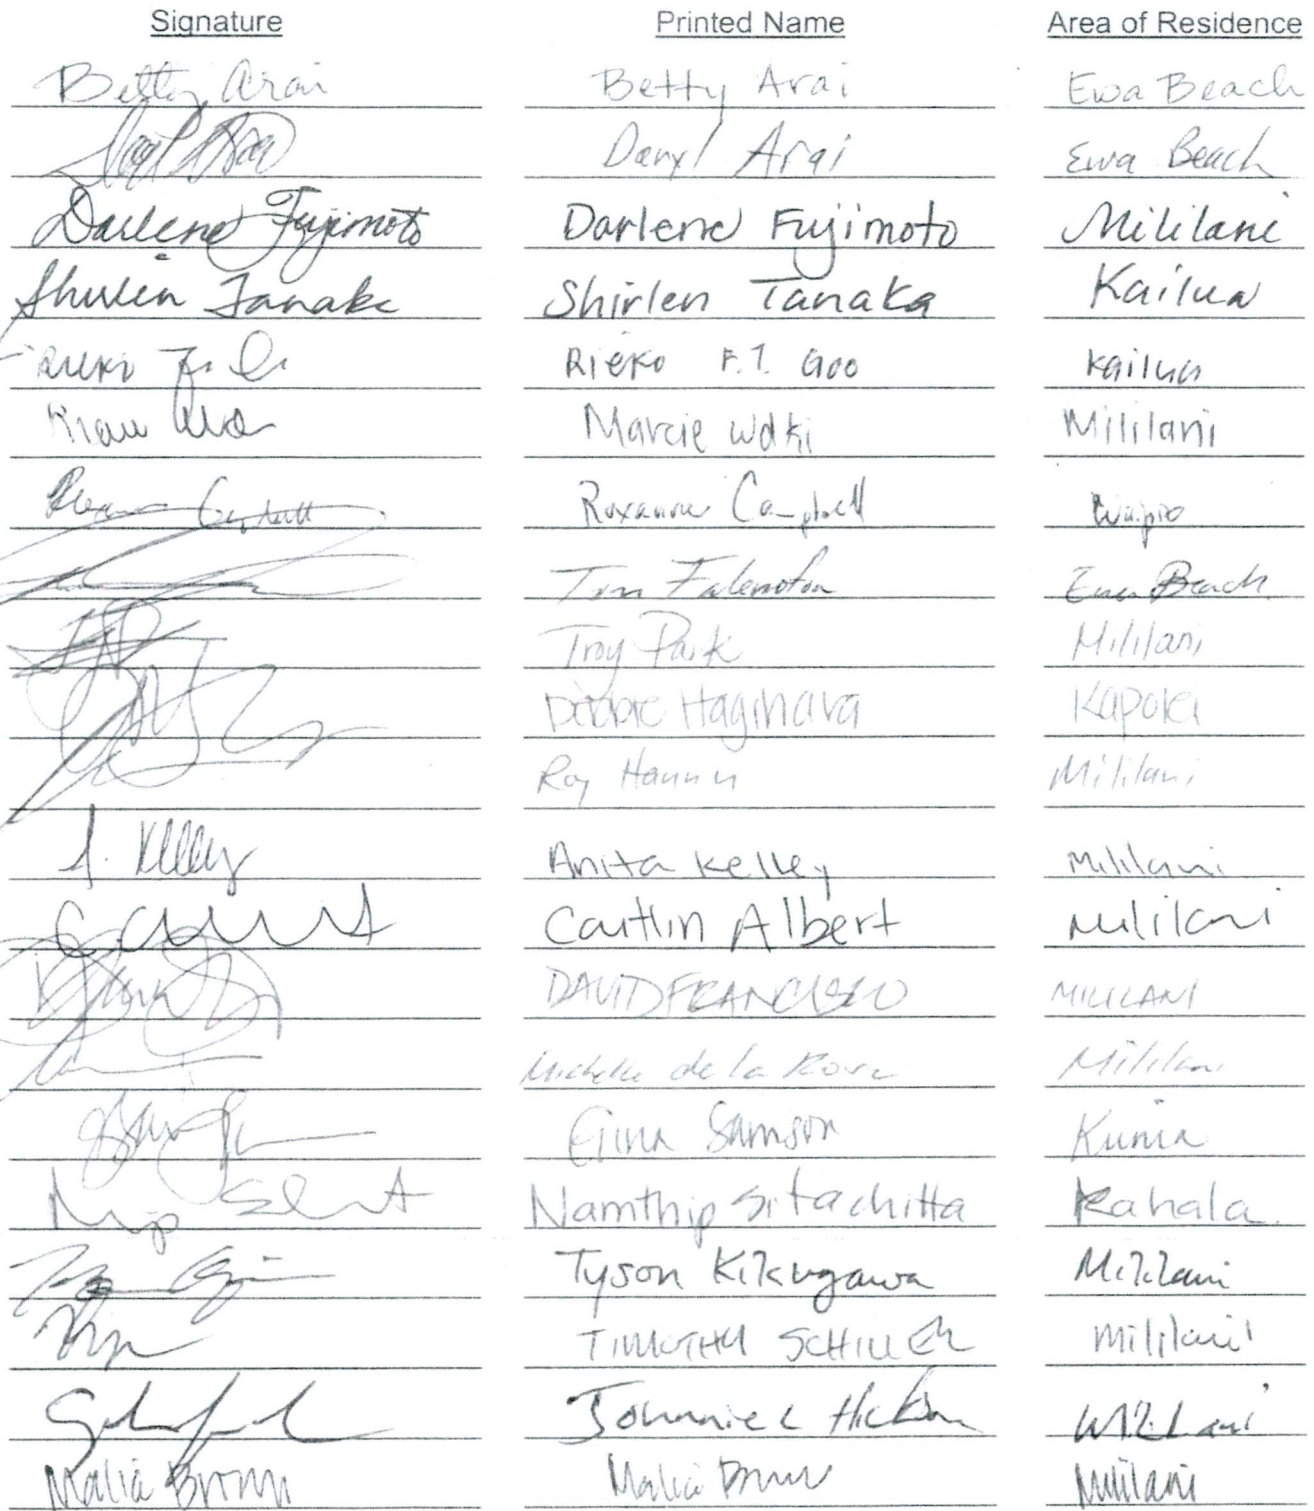 Signature Printed Name Area of Residence
Betty Arai Betty Arai Ewa Beach
Daryl Arai Ewa Beach
Darlene Fujimoto Darlene Fujimoto Mililani
Shirlen Tanaka Shirlen Tanaka Kailua
Rieko F.T. Goo Kailua
Marcie Mililani
Roxanne Campbell Roxanne Campbell Waipio
Ewa Beach
Troy Park Mililani
Debbie Hagihara Kapolei
Roy Mililani
A. Kelley Anita Kelley Mililani
Caitlin Albert Mililani
DAVID FRANCISCO MILILANI
Michelle de la Rosa Mililani
Gina Samson Kunia
Namthip Sitachitta Kahala
Tyson Kikugawa Mililani
TIMOTHY SCHILLER Mililani
Johnnie L Mililani
Malia Brown Malia Brown Mililani